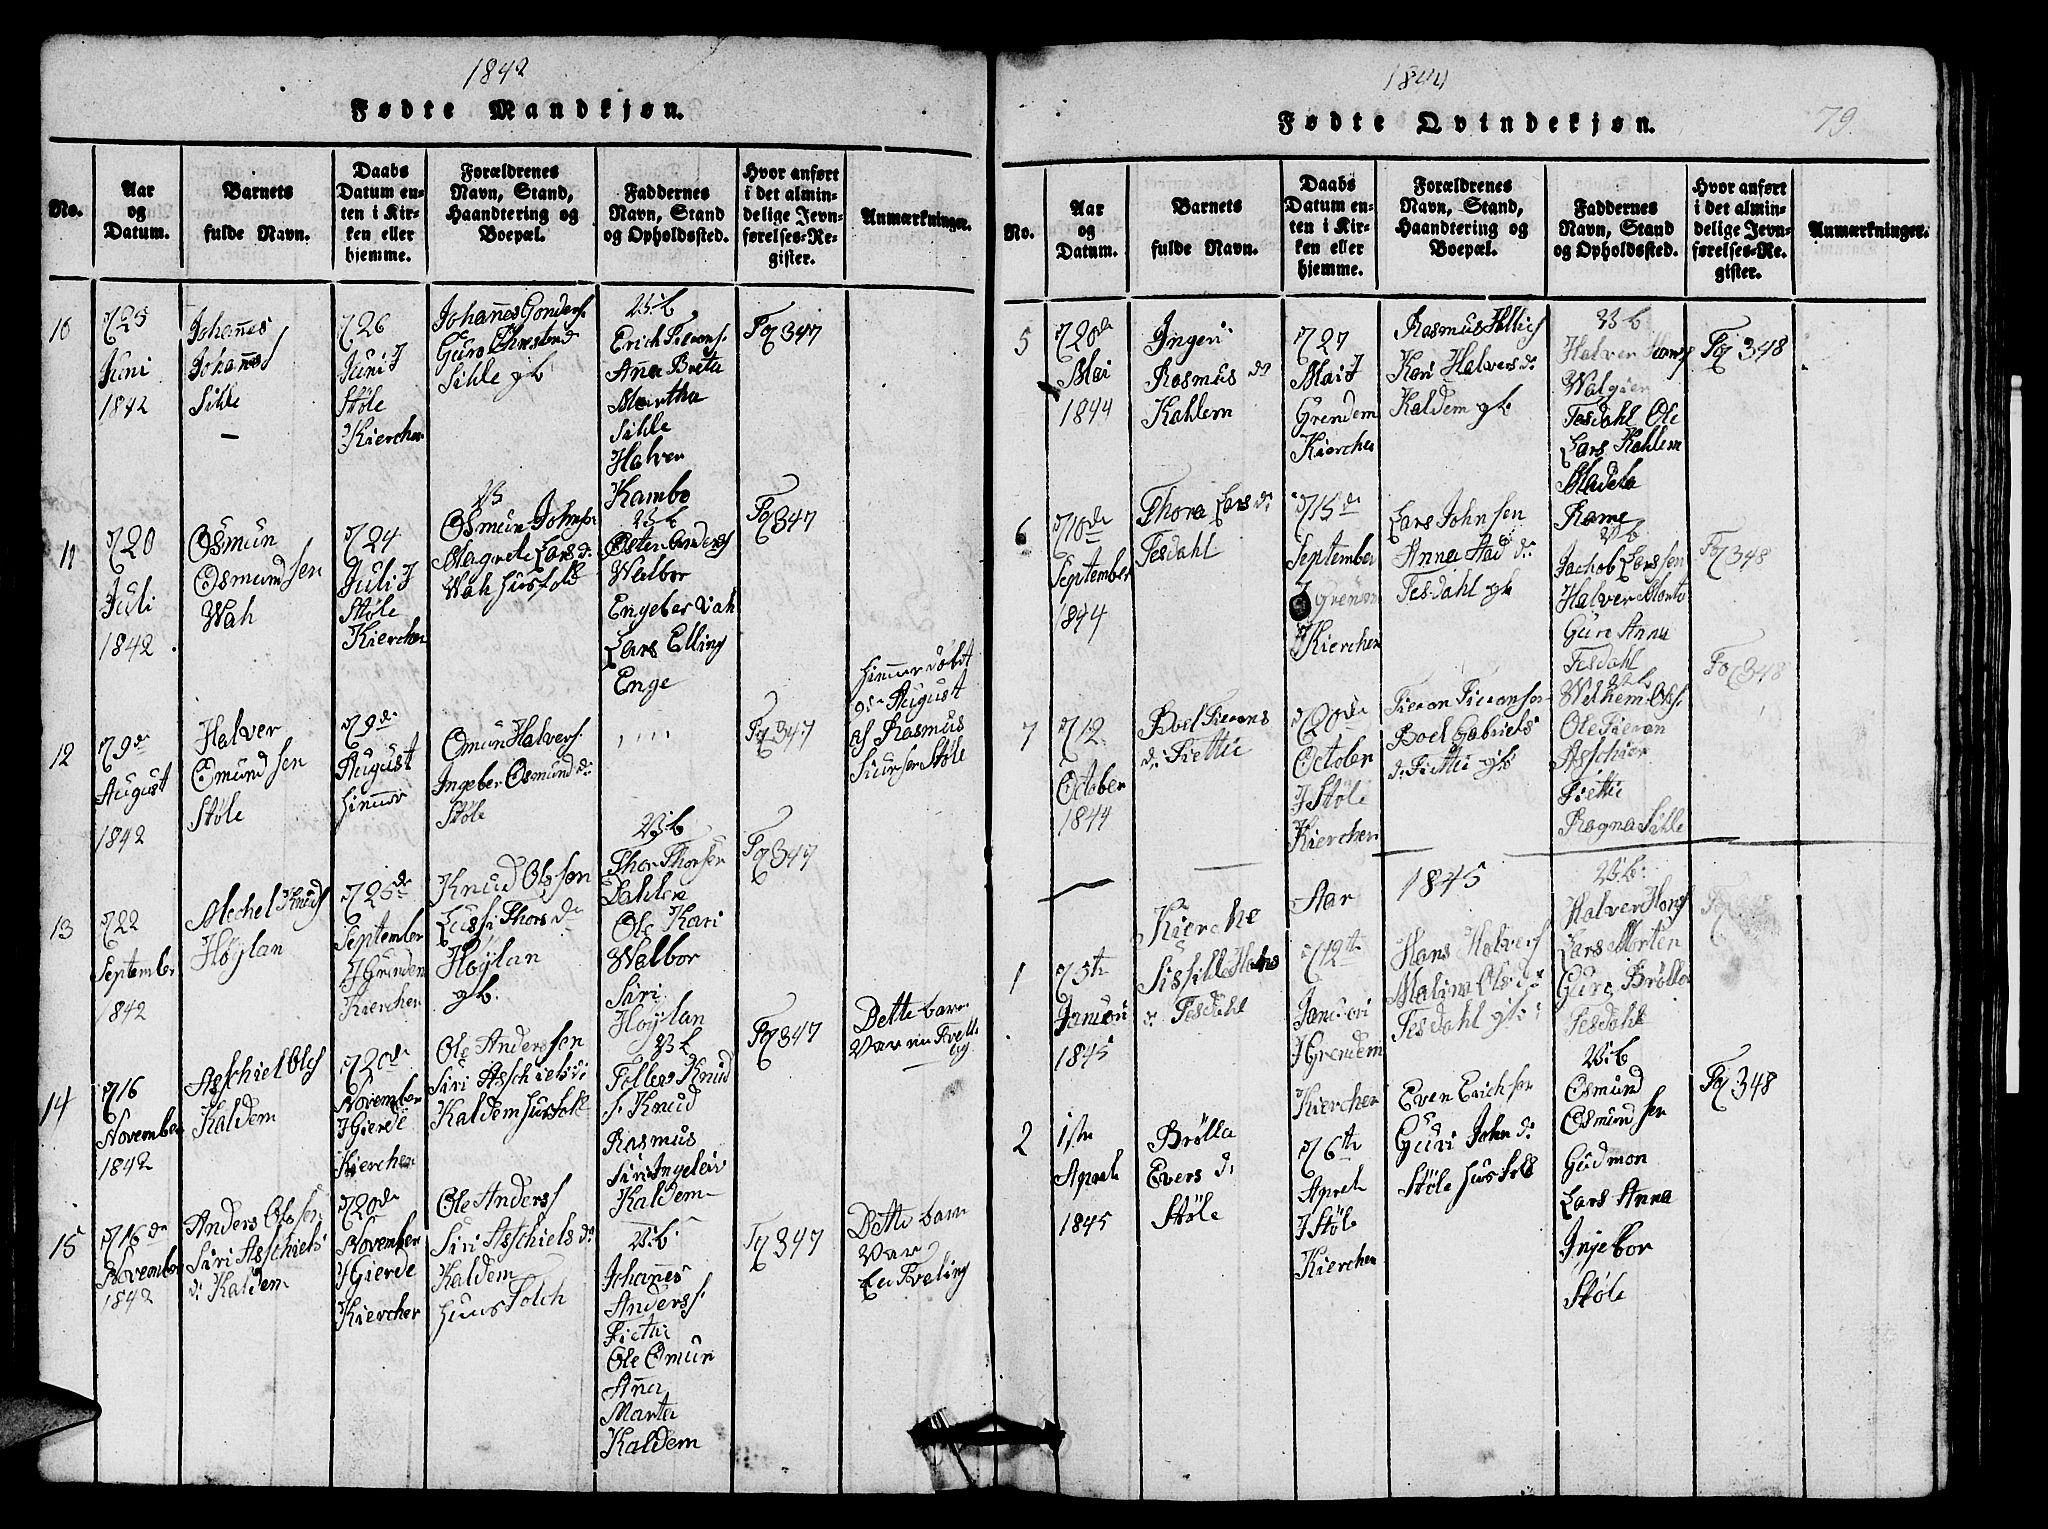 1842
Fødte Mandkjøn.
No.
Aar
og
Datum.
Barnets
fulde Navn.
Daabs
Datum en-
ten i Kir-
ken eller
hjemme.
Forældrenes
Navn, Stand,
Haandtering og
Boepæl.
Faddernes
Navn, Stand
og Opholdssted.
Hvor anført
i det almin-
delige Jevn-
førelses-Re-
gister.
Anmærkninger.
10
25
Juni
1842
Johannes
Johannes
Sihle
26
Juni J
Støle
Kiercher
Johannes Gonders.
Guro
Sihle gb
Erich
Anna Breta
Martha
Sihle
Halver
Kambo
Fol 347
11
20
Juli
1842
Osmun
Osmundsen
Wah
24
Juli J
Støle
Kiercher
Osmun Johnsen
Magrete Lars d.
Wah husfolk
Østen
Walbor
Engeber Vah
Lars Elling
Enge
Fol 347
12
9de
August
1842
Halver
Osmundsen
Støle
9de
August
himmer
Omun Halvers.
Ingeber Osmund d.
Støle
Fol 347
himmer døbt
9de August
af Rasmus
Støle
13
22
September
1842
Mechel Knuds
Høylan
25de
September
J Grinden
Kiercher
Knud Olssen
Lussi Thors d.
Høylan
gb.
Thor Thorsen
Dahlen
Ole Kari
Walbor
Siri
Høylan
Fol 347
14
16
November
1842
Asschiel Ols
Kaldem
20de
November
J Gierde
Kiercher
Ole Anderssen
Siri Asschiels d.
Kaldem husfolk
Follev Knud
s. Knud
Rasmus
Siri Ingeleiv
Kaldem
Fol 347
Dette barn
Var en
15
16de
November
1842
Anders Olssen
Siri Asschiels
d. Kaldem
20de
November
J Gierde
Kiercher
Ole Anders
Siri Asschiels d.
Kaldem
huus Folch
Johannes
Anders.
Fiettie
Ole Omun
Anna
Marta
Kaldem
Fol 347
Dette barn
Var
En Tveling
1844
Fødte Qvindekjøn.
79.
No.
Aar
og
Datum.
Barnets
fulde Navn.
Daabs
Datum en-
ten i Kir-
ken eller
hjemme.
Forældrenes
Navn, Stand,
Haandtering og
Boepæl.
Faddernes
Navn, Stand
og Opholdssted.
Hvor anført
i det almin-
delige Jevn-
førelses-Re-
gister.
Anmærkninger.
5
20de
Mai
1844
Ingeri
Rasmus d.
Kahlem
27
Mai J
Grendem
Kiercher
Rasmus
Kari Halvers d.
Kaldem gb
Halver Hans
Walgier
Tesdahl Ole
Lars Kahlem
Madela
Rame
Fol 348
6
10de
September
1844
Thora Lars d.
Tesdahl
15de
September
J
Kiercher
Lars Johnsen
Anna Aad d.
Tesdahl gb
Jachob Larssen
Halver
Guri Anna
Tesdahl
Fol 348
7
12
October
1844
Boel Tierans
d. Fiettie
20de
October
J Støle
Kiercher
Tieran Tieransen
Boel Gabriels
d. Fiettie gb
Welhem Ols.
Ole Tieran
Asschier
Fiettie
Ragna Sihle
Fol 348
Kierche Aar 1845
1
5th
Januari
1845
Sissille Hans
d. Tesdahl
12th
Januari
J Grendem
Kiercher
Hans Halvers
Malina Ols d.
Tesdahl gb.
Halver Hans
Lars Morten
Guri Brølla
Tesdahl
2
1ste
Aprel
1845
Brølla
Evers d.
Støle
6th
Aprel
J Støle
Kiercher
Even Ericksen
Guri John d.
Støle husfolk
Osmund
Osmundsen
Gudmon
Lars Anna
Injebor
Støle
Fol 348